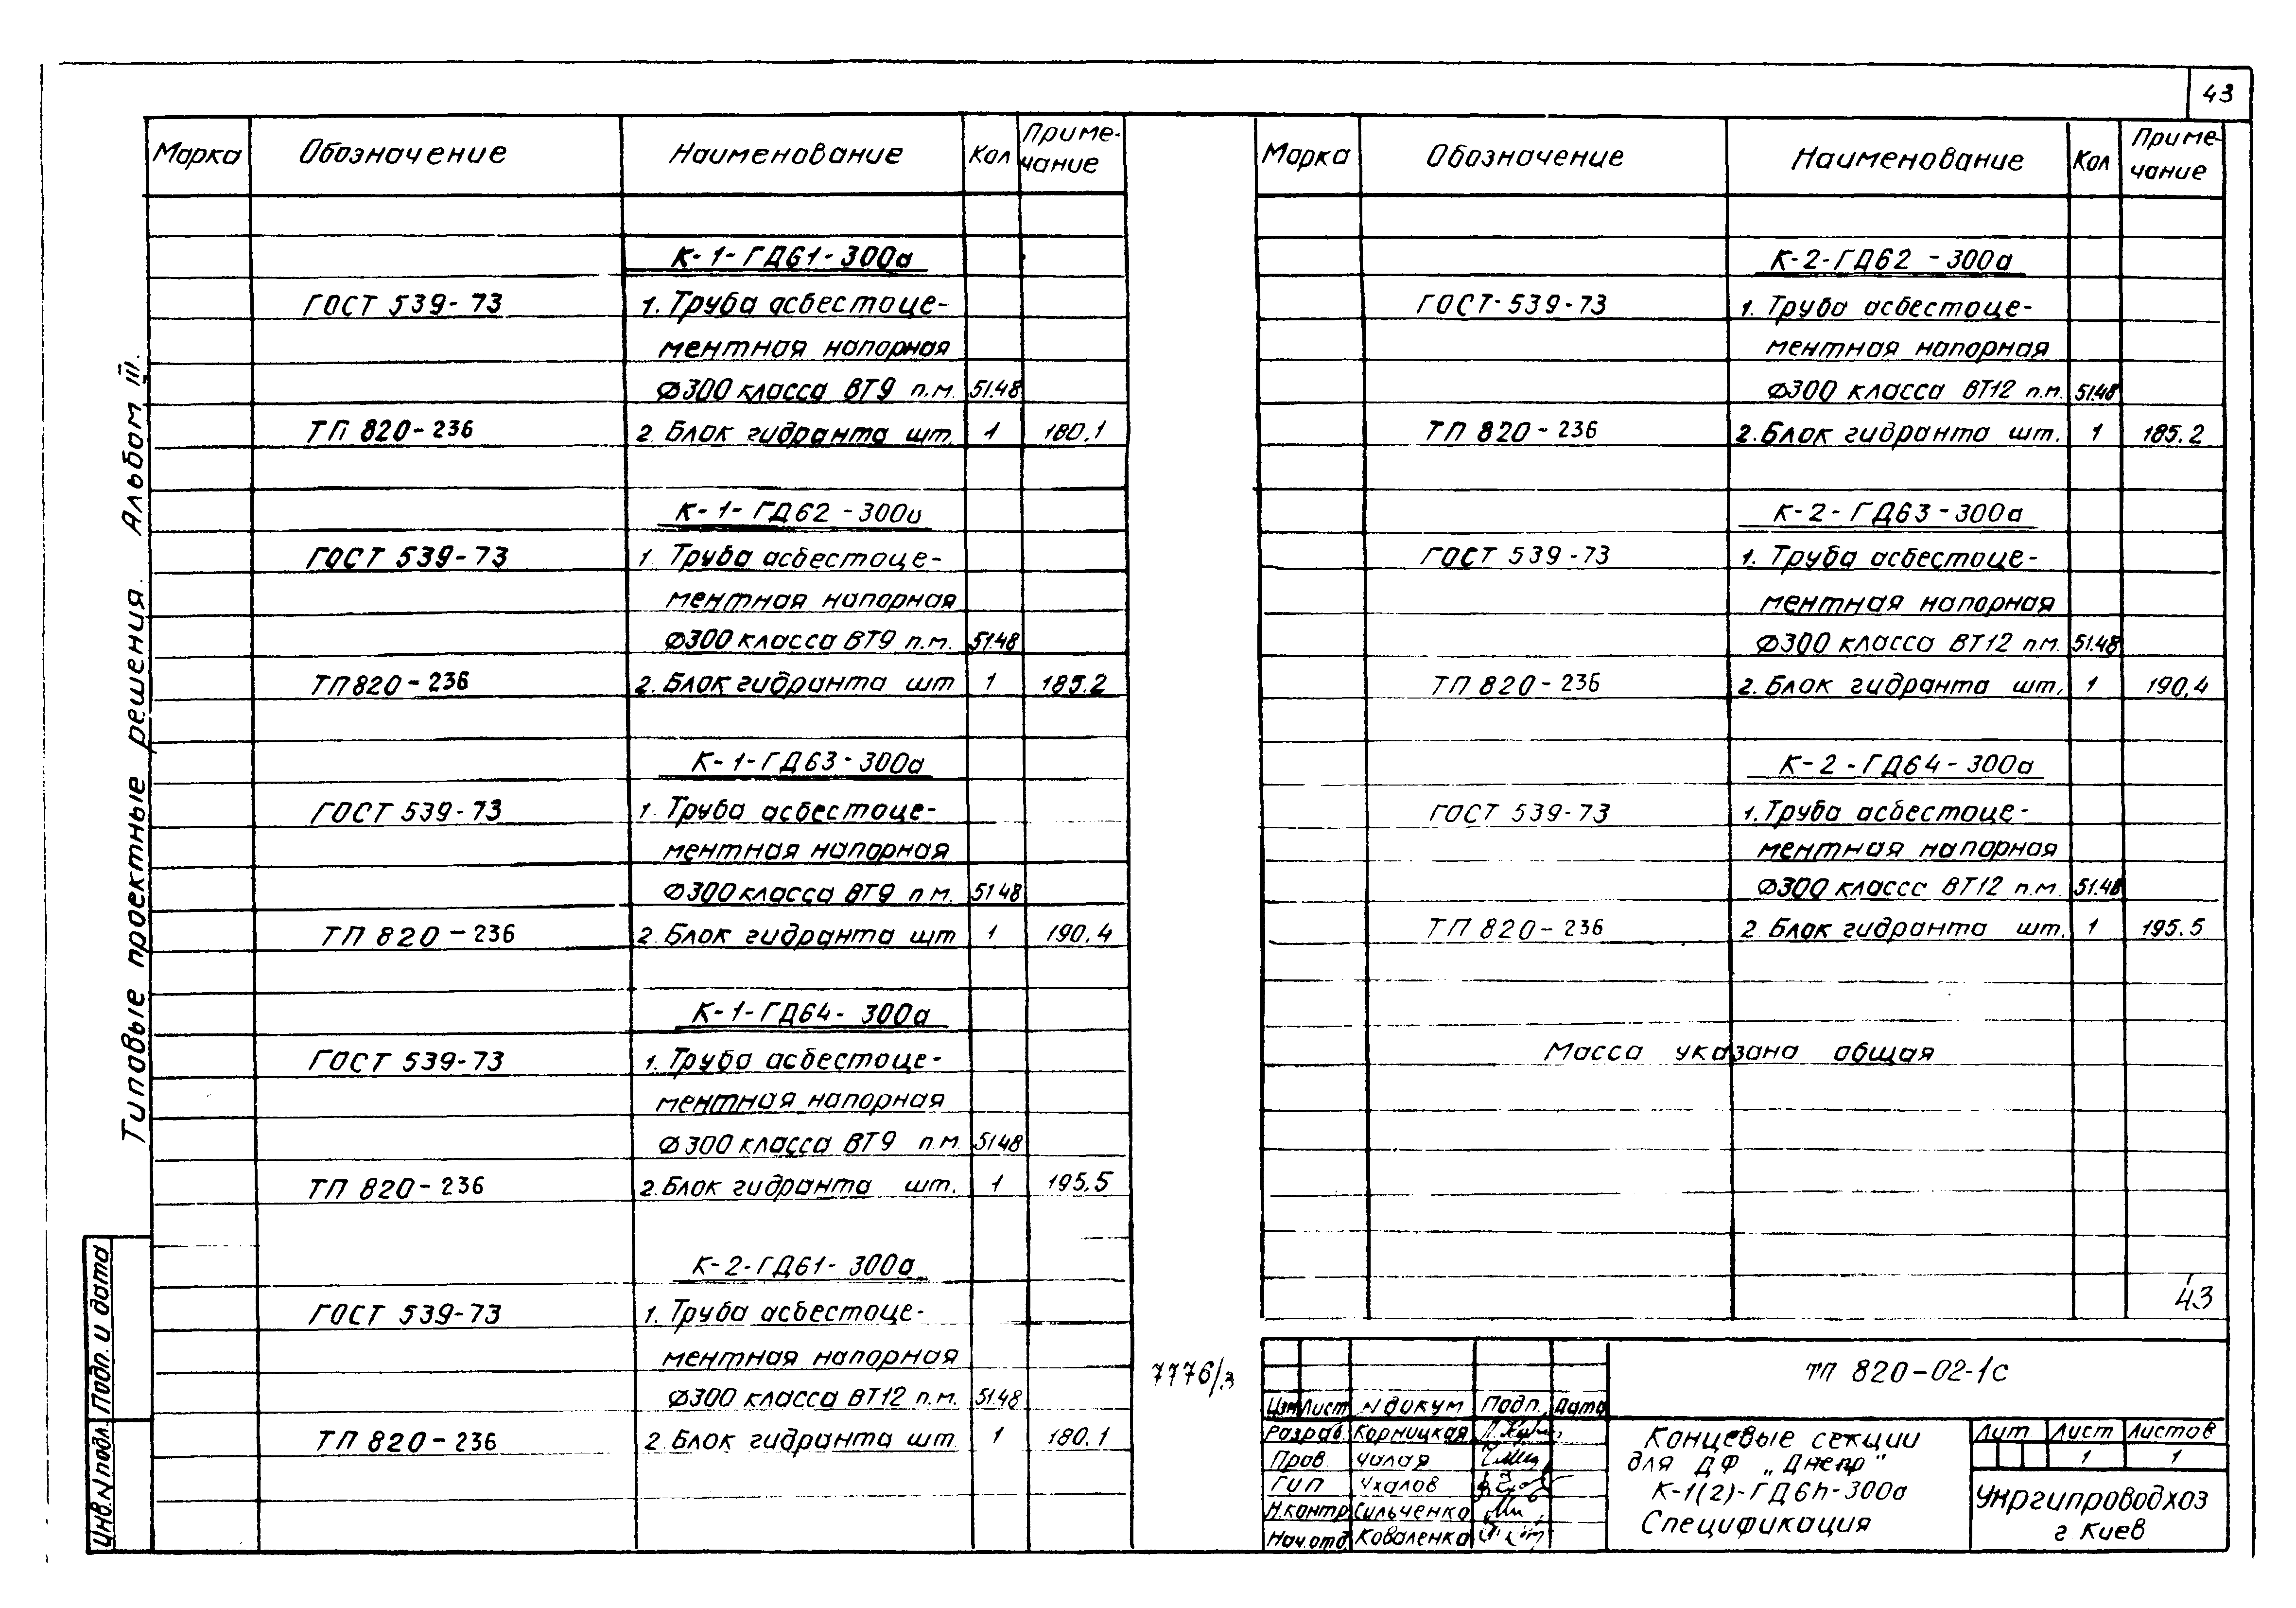 43
Типовые проектные решения. Альбом III.
Марка Обозначение Наименование Кол Приме-
чание
К-1-ГД61-300а
ГОСТ 539-73 1. Труба асбестоце-
ментная напорная
Ф300 класса ВТ9 п.м. 51.48
ТП 820-236 2. Блок гидранта шт. 1 180.1
К-1-ГД62-300а
ГОСТ 539-73 1. Труба асбестоце-
ментная напорная
Ф300 класса ВТ9 п.м. 51.48
ТП 820-236 2. Блок гидранта шт 1 185.2
К-1-ГД63-300а
ГОСТ 539-73 1. Труба асбестоце-
ментная напорная
Ф300 класса ВТ9 п м. 51 48
ТП 820-236 2 Блок гидранта шт 1 190.4
К-1-ГД64-300а
ГОСТ 539-73 1. Труба асбестоце-
ментная напорная
Ф300 класса ВТ9 п.м. 51 48
ТП 820-236 2. Блок гидранта шт. 1 195.5
К-2-ГД61-300а
ГОСТ 539-73 1. Труба асбестоце-
ментная напорная
Ф300 класса ВТ12 п.м. 51.48
ТП 820-236 2 Блок гидранта шт. 1 180.1
7776/3
Марка Обозначение Наименование Кол Приме-
чание
К-2-ГД62-300а
ГОСТ 539-73 1. Труба асбестоце-
ментная напорная
Ф300 класса ВТ12 п.м. 51.48
ТП 820-236 2. Блок гидранта шт. 1 185.2
К-2-ГД63-300а
ГОСТ 539-73 1. Труба асбестоце-
ментная напорная
Ф300 класса ВТ12 п.м. 51.48
ТП 820-236 2. Блок гидранта шт. 1 190.4
К-2-ГД64-300а
ГОСТ 539-73 1. Труба асбестоце-
ментная напорная
Ф300 класса ВТ12 п.м. 51.48
ТП 820-236 2 Блок гидранта шт. 1 195.5
Масса указана общая
43
ТП 820-02-1с
Изм Лист N докум Подп. Дата
Разраб. Корницкая
Пров Чалая
Гип Ухалов
Н.контр Сильченко
Нач.отд Коваленко
Концевые секции
для ДФ „Днепр"
К-1(2)-ГД6h-300а
Спецификация
Лит Лист Листов
1 1
Укргипроводхоз
г Киев
Инв. N подл. Подп. и дата